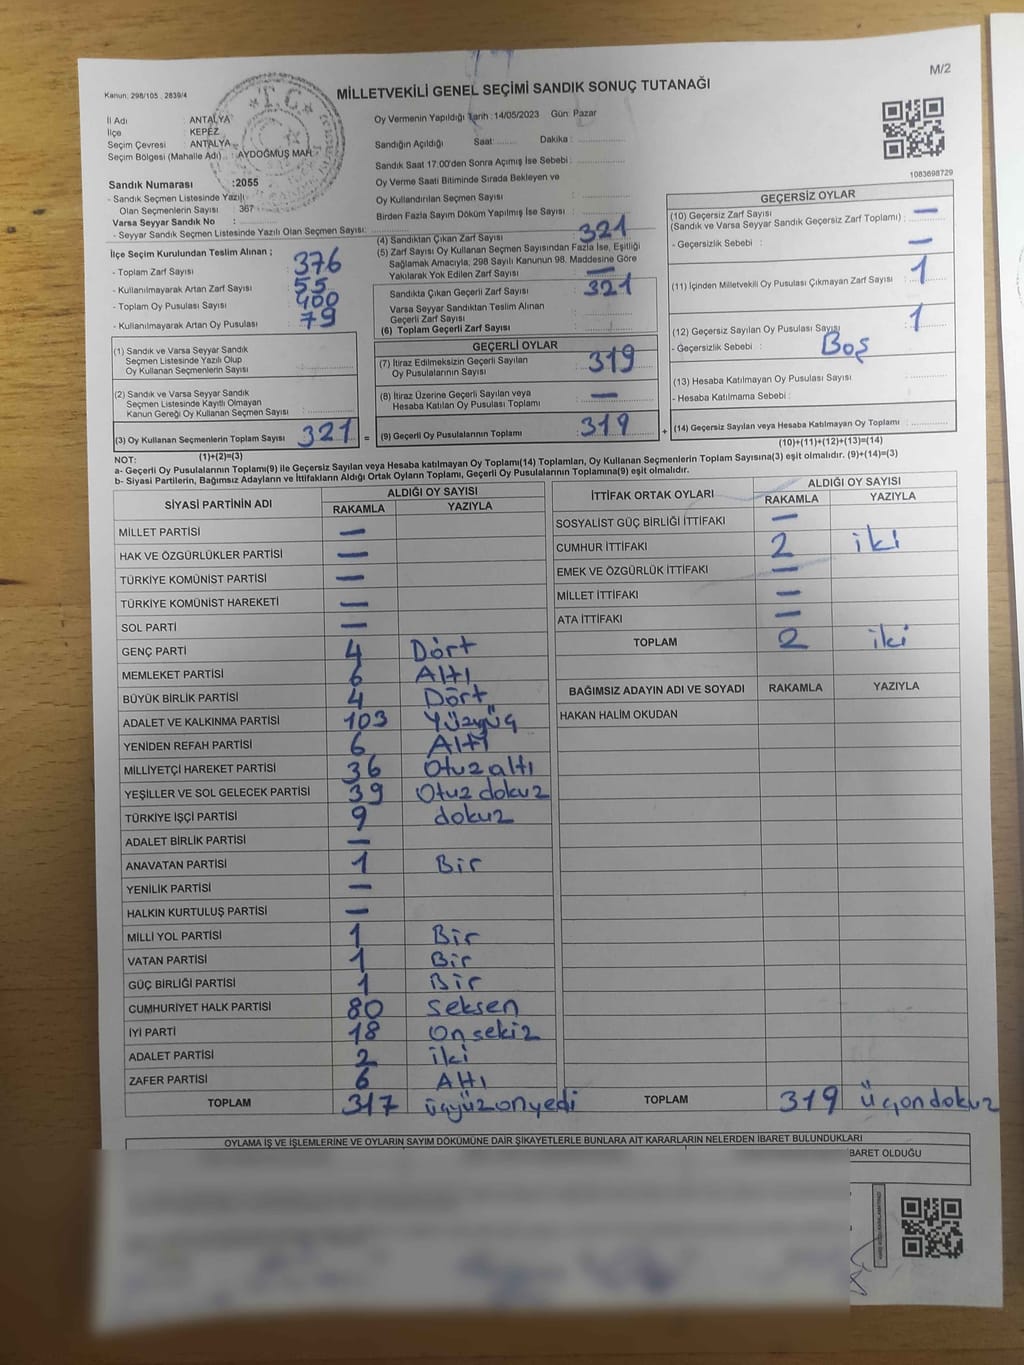 M/2
Kanun: 298/105 , 2839/4
MİLLETVEKİLİ GENEL SEÇİMİ SANDIK SONUÇ TUTANAĞI
İl Adı : ANTALYA
İlçe : KEPEZ
Seçim Çevresi : ANTALYA
Seçim Bölgesi (Mahalle Adı) : AYDOĞMUŞ MAH.
Sandık Numarası :2055
- Sandık Seçmen Listesinde Yazılı
Olan Seçmenlerin Sayısı : 367
Varsa Seyyar Sandık No :
- Seyyar Sandık Seçmen Listesinde Yazılı Olan Seçmen Sayısı:
T.C.
Oy Vermenin Yapıldığı Tarih : 14/05/2023 Gün: Pazar
Sandığın Açıldığı Saat: Dakika :
Sandık Saat 17:00'den Sonra Açımış İse Sebebi :
Oy Verme Saati Bitiminde Sırada Bekleyen ve
Oy Kullandırılan Seçmen Sayısı :
Birden Fazla Sayım Döküm Yapılmış İse Sayısı :
1083698729
İlçe Seçim Kurulundan Teslim Alınan ;
- Toplam Zarf Sayısı : 376
- Kullanılmayarak Artan Zarf Sayısı : 55
- Toplam Oy Pusulası Sayısı : 400
- Kullanılmayarak Artan Oy Pusulası : 79
(1) Sandık ve Varsa Seyyar Sandık
Seçmen Listesinde Yazılı Olup
Oy Kullanan Seçmenlerin Sayısı :
(2) Sandık ve Varsa Seyyar Sandık
Seçmen Listesinde Kayıtlı Olmayan
Kanun Gereği Oy Kullanan Seçmen Sayısı :
(3) Oy Kullanan Seçmenlerin Toplam Sayısı : 321 =
(1)+(2)=(3)
(4) Sandıktan Çıkan Zarf Sayısı : 321
(5) Zarf Sayısı Oy Kullanan Seçmen Sayısından Fazla İse, Eşitliği
Sağlamak Amacıyla, 298 Sayılı Kanunun 98. Maddesine Göre
Yakılarak Yok Edilen Zarf Sayısı : —
Sandıkta Çıkan Geçerli Zarf Sayısı : 321
Varsa Seyyar Sandıktan Teslim Alınan
Geçerli Zarf Sayısı :
(6) Toplam Geçerli Zarf Sayısı :
GEÇERLİ OYLAR
(7) İtiraz Edilmeksizin Geçerli Sayılan
Oy Pusulalarının Sayısı : 319
(8) İtiraz Üzerine Geçerli Sayılan veya
Hesaba Katılan Oy Pusulası Toplamı : —
(9) Geçerli Oy Pusulalarının Toplamı : 319 +
GEÇERSİZ OYLAR
(10) Geçersiz Zarf Sayısı
(Sandık ve Varsa Seyyar Sandık Geçersiz Zarf Toplamı) : —
- Geçersizlik Sebebi : —
(11) İçinden Milletvekili Oy Pusulası Çıkmayan Zarf Sayısı : 1
(12) Geçersiz Sayılan Oy Pusulası Sayısı : 1
- Geçersizlik Sebebi : Boş
(13) Hesaba Katılmayan Oy Pusulası Sayısı :
- Hesaba Katılmama Sebebi :
(14) Geçersiz Sayılan veya Hesaba Katılmayan Oy Toplamı :
(10)+(11)+(12)+(13)=(14)
NOT:
a- Geçerli Oy Pusulalarının Toplamı(9) ile Geçersiz Sayılan veya Hesaba katılmayan Oy Toplamı(14) Toplamları, Oy Kullanan Seçmenlerin Toplam Sayısına(3) eşit olmalıdır. (9)+(14)=(3)
b- Siyasi Partilerin, Bağımsız Adayların ve İttifakların Aldığı Ortak Oyların Toplamı, Geçerli Oy Pusulalarının Toplamına(9) eşit olmalıdır.
SİYASİ PARTİNİN ADI ALDIĞI OY SAYISI
RAKAMLA YAZIYLA
MİLLET PARTİSİ —
HAK VE ÖZGÜRLÜKLER PARTİSİ —
TÜRKİYE KOMÜNİST PARTİSİ —
TÜRKİYE KOMÜNİST HAREKETİ —
SOL PARTİ —
GENÇ PARTİ 4 Dört
MEMLEKET PARTİSİ 6 Altı
BÜYÜK BİRLİK PARTİSİ 4 Dört
ADALET VE KALKINMA PARTİSİ 103 Yüzüç
YENİDEN REFAH PARTİSİ 6 Altı
MİLLİYETÇİ HAREKET PARTİSİ 36 Otuz altı
YEŞİLLER VE SOL GELECEK PARTİSİ 39 Otuz dokuz
TÜRKİYE İŞÇİ PARTİSİ 9 dokuz
ADALET BİRLİK PARTİSİ —
ANAVATAN PARTİSİ 1 Bir
YENİLİK PARTİSİ —
HALKIN KURTULUŞ PARTİSİ —
MİLLİ YOL PARTİSİ 1 Bir
VATAN PARTİSİ 1 Bir
GÜÇ BİRLİĞİ PARTİSİ 1 Bir
CUMHURİYET HALK PARTİSİ 80 Seksen
İYİ PARTİ 18 On sekiz
ADALET PARTİSİ 2 iki
ZAFER PARTİSİ 6 Altı
TOPLAM 317 üçyüzonyedi
İTTİFAK ORTAK OYLARI ALDIĞI OY SAYISI
RAKAMLA YAZIYLA
SOSYALİST GÜÇ BİRLİĞİ İTTİFAKI —
CUMHUR İTTİFAKI 2 iki
EMEK VE ÖZGÜRLÜK İTTİFAKI —
MİLLET İTTİFAKI —
ATA İTTİFAKI —
TOPLAM 2 iki
BAĞIMSIZ ADAYIN ADI VE SOYADI RAKAMLA YAZIYLA
HAKAN HALİM OKUDAN
TOPLAM 319 üçondokuz
OYLAMA İŞ VE İŞLEMLERİNE VE OYLARIN SAYIM DÖKÜMÜNE DAİR ŞİKAYETLERLE BUNLARA AİT KARARLARIN NELERDEN İBARET BULUNDUKLARI
BARET OLDUĞU